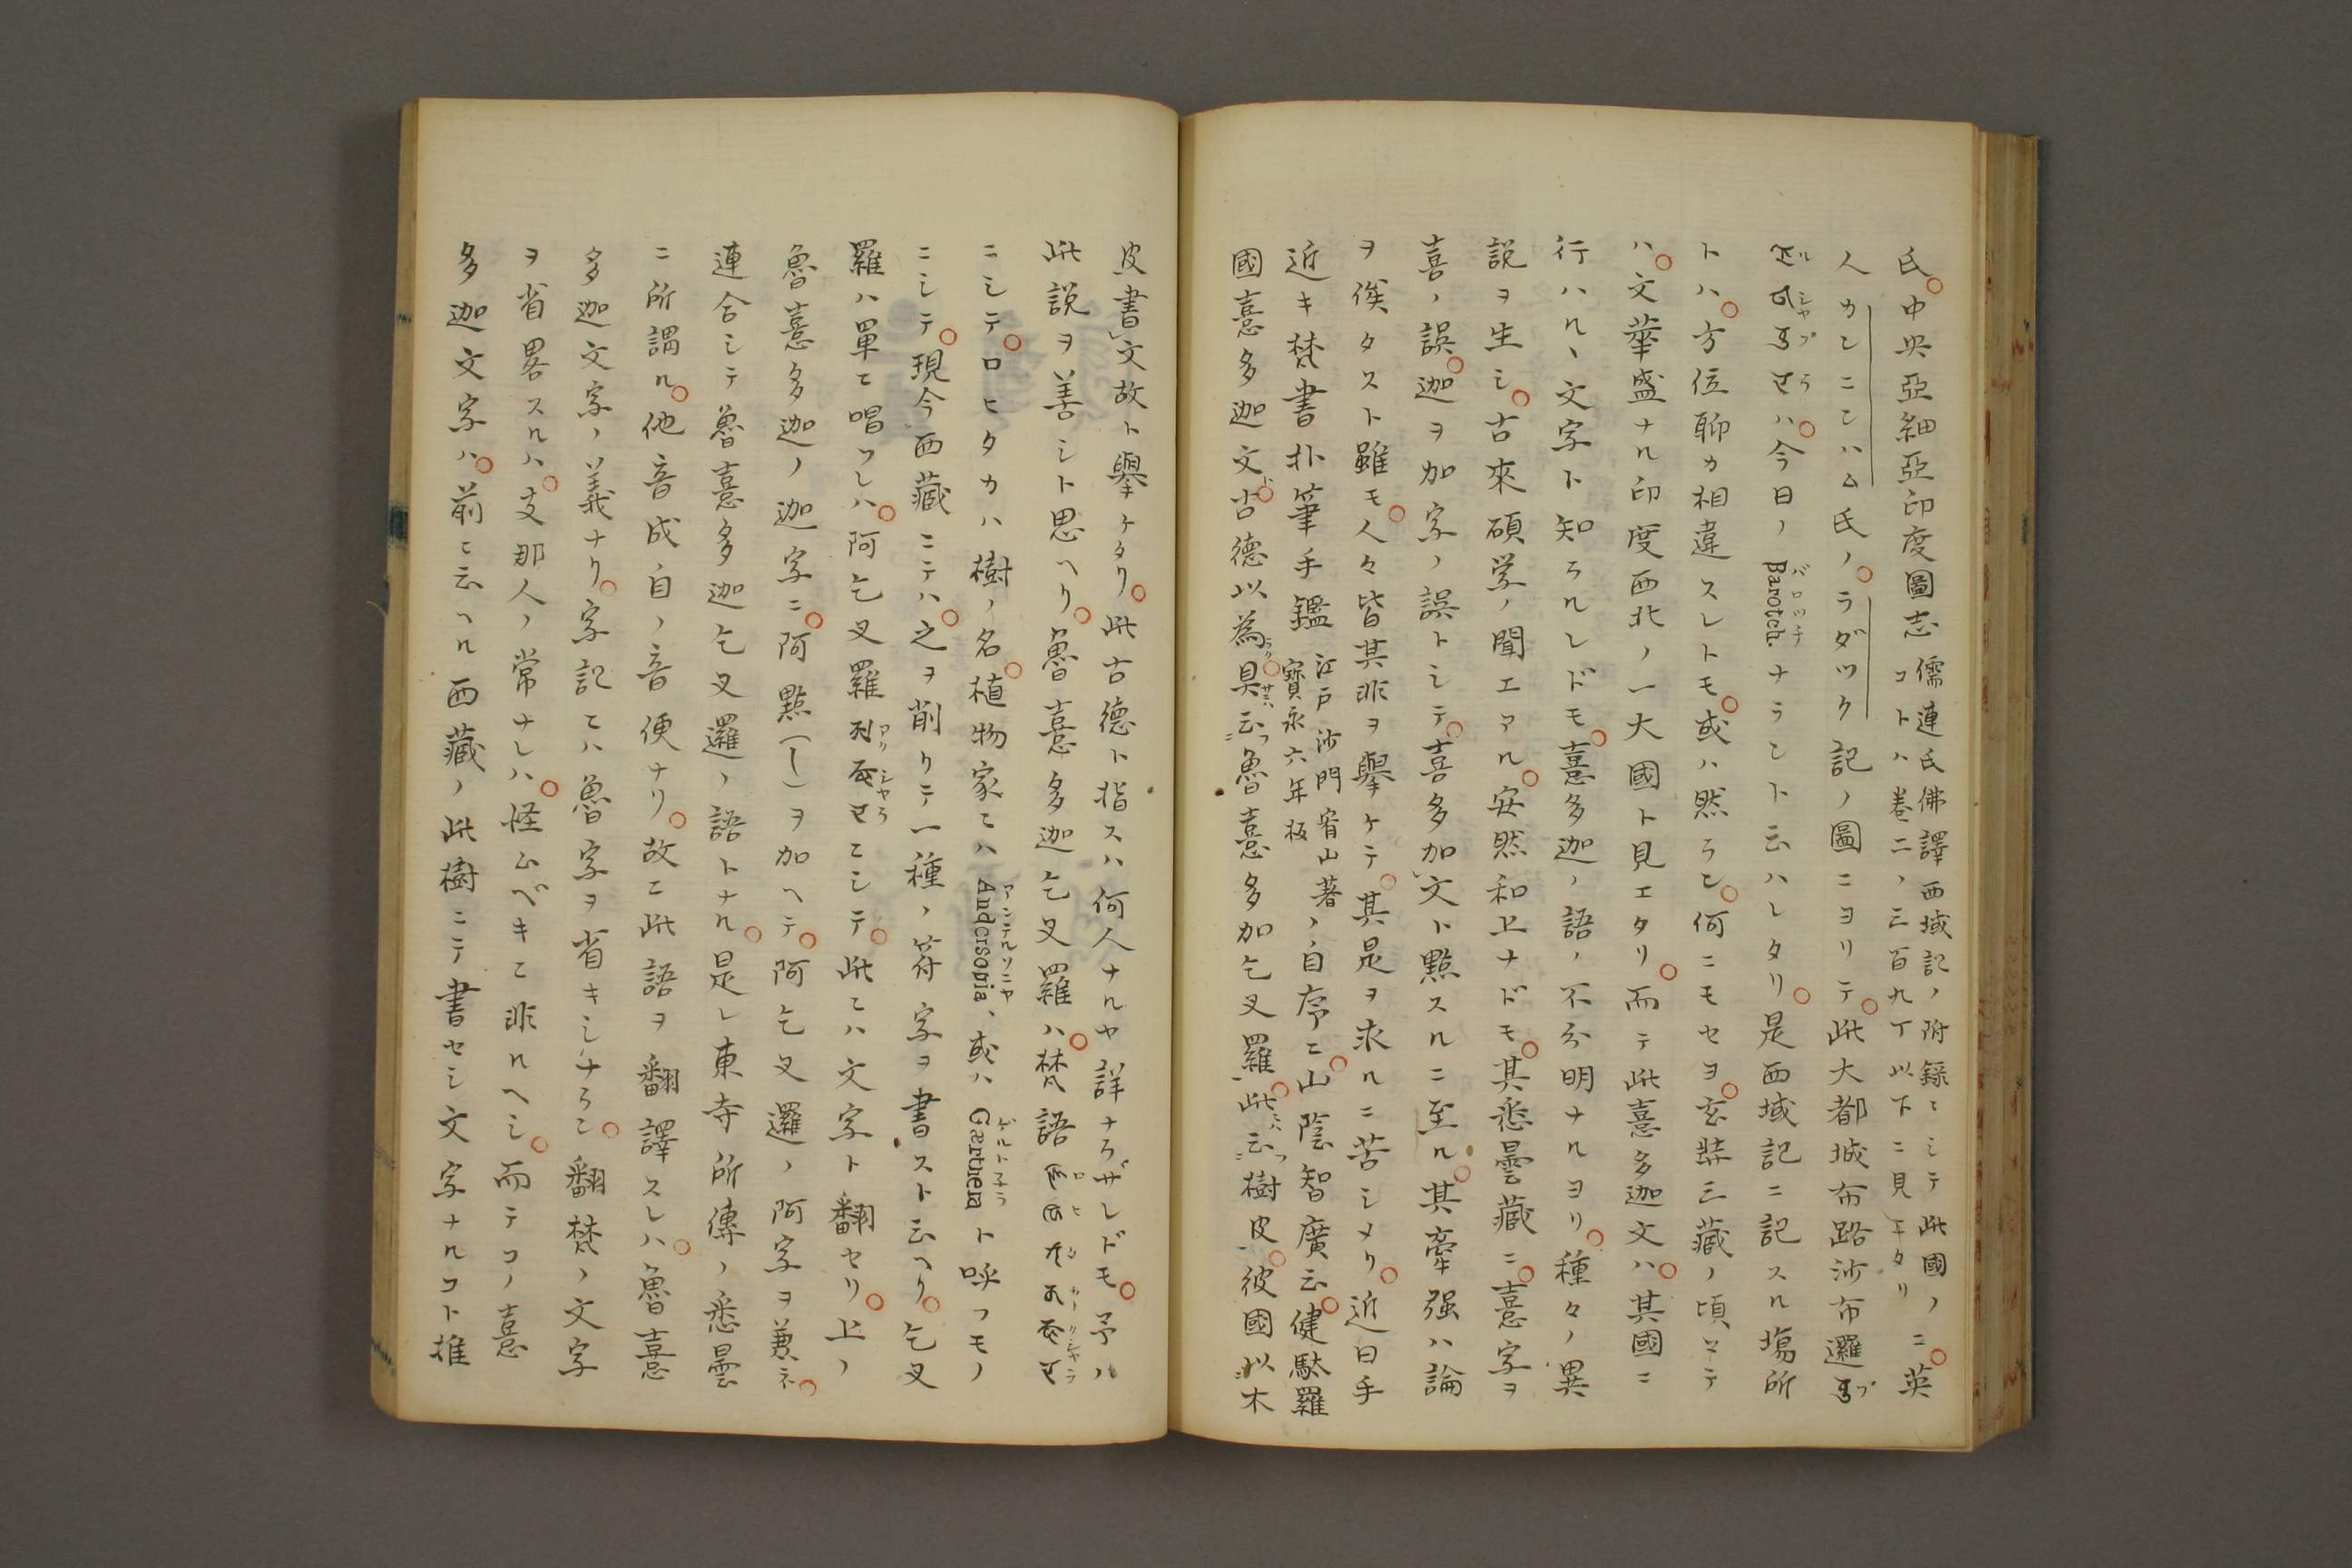 氏中央亞細亞印度圖志儒連氏佛譯西域記ノ附錄ニシテ此國ノ
コトハ卷二ノ三百九丁以下ニ見エタリニ英
人カンニンハム氏ノラダツク記ノ圖ニヨリテ此大都城布路沙布邏
ハ今日ノBarotch.ナラント云ハレタリ是西域記ニ記スル塲所
トハ方位聊カ相違スレトモ或ハ然ラン何ニモセヨ玄弉三藏ノ頃マテ
ハ文華盛ナル印度西北ノ一大國ト見エタリ而テ此憙多迦文ハ其國ニ
行ハルヽ文字ト知ラルレドモ憙多迦ノ語ノ不分明ナルヨリ種々ノ異
説ヲ生シ古來碩学ノ聞エアル安然和上ナドモ其悉曇藏ニ憙字ヲ
喜ノ誤迦ヲ加字ノ誤トシテ喜多加文ト點スルニ至ル其牽强ハ論
ヲ俟タスト雖モ人々皆其非ヲ擧ケテ其是ヲ求ルニ苦シメリ近日手
近キ梵書朴筆手鑑江戸沙門宥山著
寳永六年板ノ自序ニ山陰智廣云健駄羅
國憙多迦文古德以為具云魯憙多加乞叉羅此云樹皮彼國以木
皮書文故ト擧ケタリ此古德ト指スハ何人ナルヤ詳ナラザレドモ予ハ
此説ヲ善シト思ヘリ魯憙多迦乞叉羅ハ梵語
ニシテロヒタカハ樹ノ名植物家ニハAndersonia、或ハGærtneraト呼フモノ
ニシテ現今西藏ニテハ之ヲ削リテ一種ノ符字ヲ書スト云ヘリ乞叉
羅ハ單ニ唱フレハ阿乞叉羅ニシテ此ニハ文字ト翻セリ上ノ
魯憙多迦ノ迦字ニ阿點ヲ加ヘテ阿乞叉邏ノ阿字ヲ兼ネ
連合シテ魯憙多迦乞叉邏ノ語トナル是レ東寺所傳ノ悉曇
ニ所謂ル他音成自ノ音便ナリ故ニ此語ヲ翻譯スレハ魯憙
多迦文字ノ義ナリ字記ニハ魯字ヲ省キシナラン翻梵ノ文字
ヲ省畧スルハ支那人ノ常ナレハ怪ムベキニ非ルヘシ而テコノ憙
多迦文字ハ前ニ云ヘル西藏ノ此樹ニテ書セシ文字ナルコト推